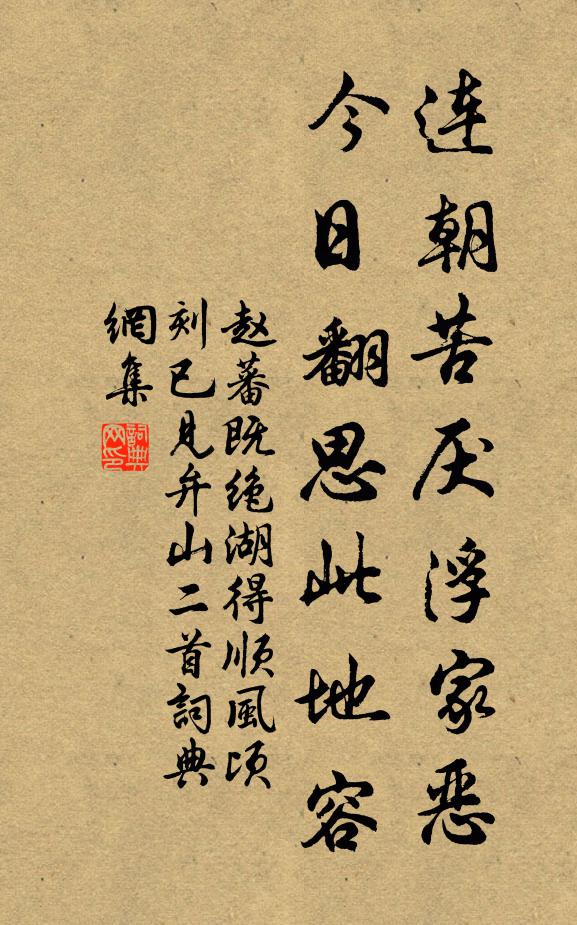 連朝苦厌浮家恶
今日翻思此地容
赵蕃既绝湖得順風頃
刻已見弁山二首詞典
網集
詞典網印